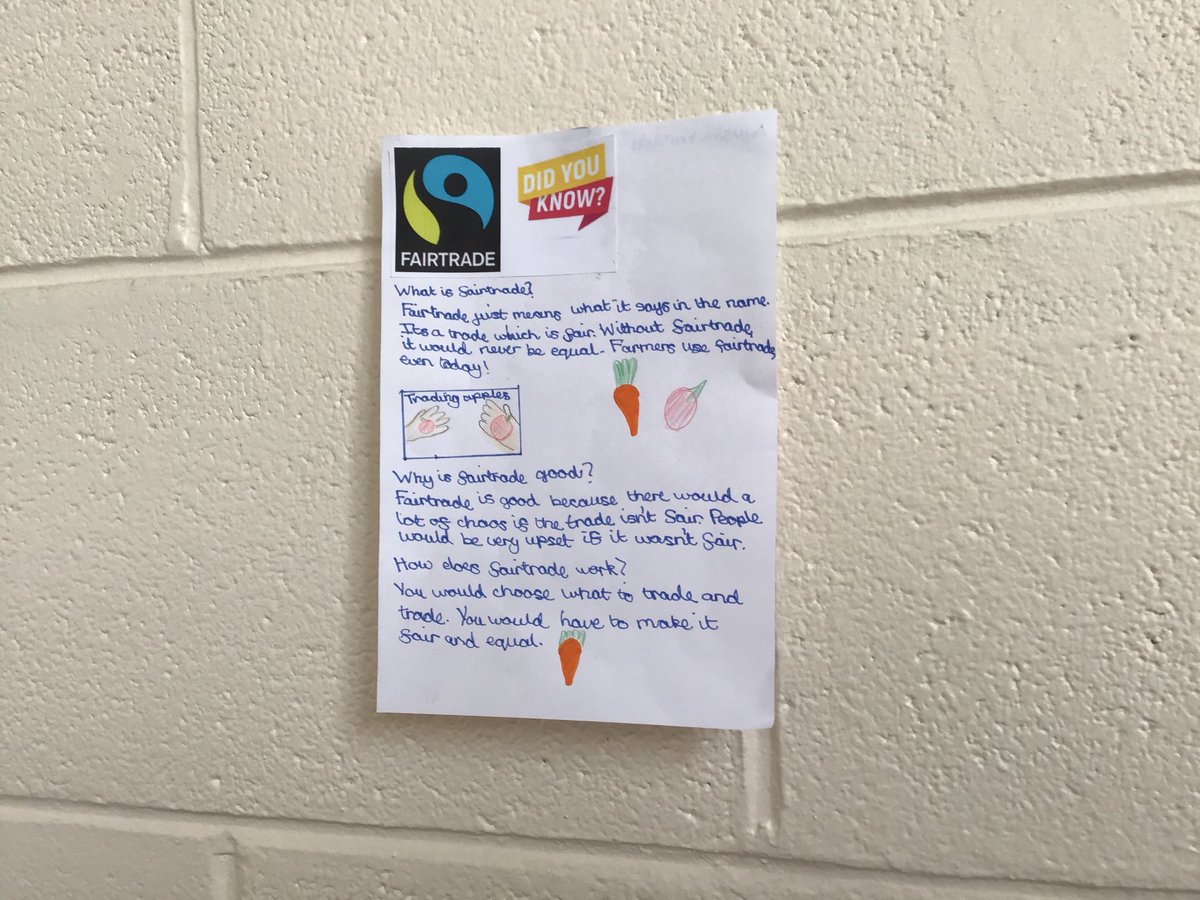 FAIRTRADE
DID YOU
KNOW?
What is fairtrade?
Fairtrade just means what it says in the name.
Its a trade which is fair. Without fairtrade,
it would never be equal. Farmers use fairtrade
even today!
Trading apples
Why is fairtrade good?
Fairtrade is good because there would a
lot of chaos if the trade isn't fair. People
would be very upset if it wasn't fair.
How does fairtrade work?
You would choose what to trade and
trade. You would have to make it
fair and equal.